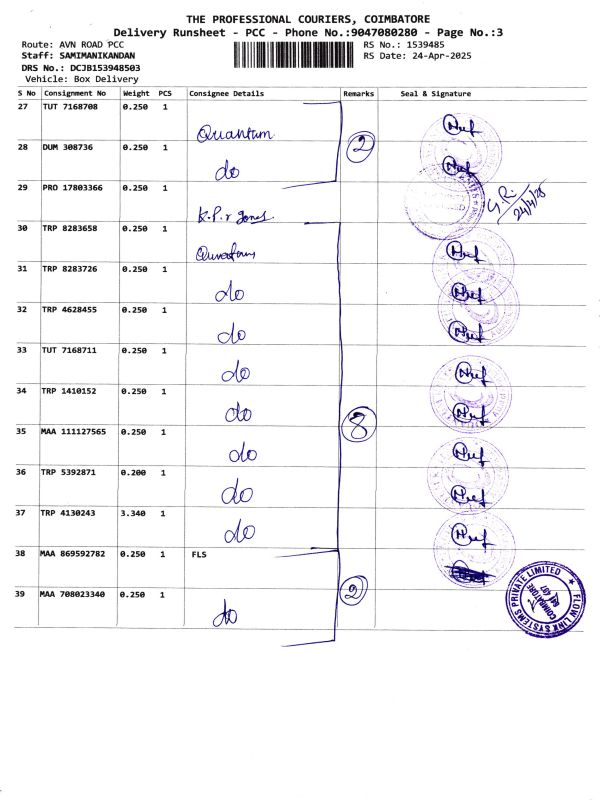 THE PROFESSIONAL COURIERS, COIMBATORE
Delivery Runsheet - PCC - Phone No.:9047080280 - Page No.:3
Route: AVN ROAD PCC
RS No.: 1539485
Staff: SAMIMANIKANDAN
RS Date: 24-Apr-2025
DRS No.: DCJB153948503
Vehicle: Box Delivery
S No Consignment No Weight PCS Consignee Details Remarks Seal & Signature
27 TUT 7168708 0.250 1 Quantum
2
28 DUM 308736 0.250 1 do
29 PRO 17803366 0.250 1 K.P.r
24/4/25
30 TRP 8283658 0.250 1
31 TRP 8283726 0.250 1 do
32 TRP 4628455 0.250 1 do
33 TUT 7168711 0.250 1 do
34 TRP 1410152 0.250 1 do
8
35 MAA 111127565 0.250 1 do
36 TRP 5392871 0.200 1 do
37 TRP 4130243 3.340 1 do
38 MAA 869592782 0.250 1 FLS
39 MAA 708023340 0.250 1 do
2
FLOW LINK SYSTEMS PRIVATE LIMITED
COIMBATORE
641 407